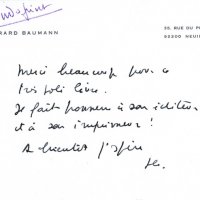 RARD BAUMANN
35, RUE DU P
92200 NEUI
Merci beaucoup pour ce
très joli livre.
Il fait honneur à son éditeur
et à son imprimeur !
A bientôt j'espère